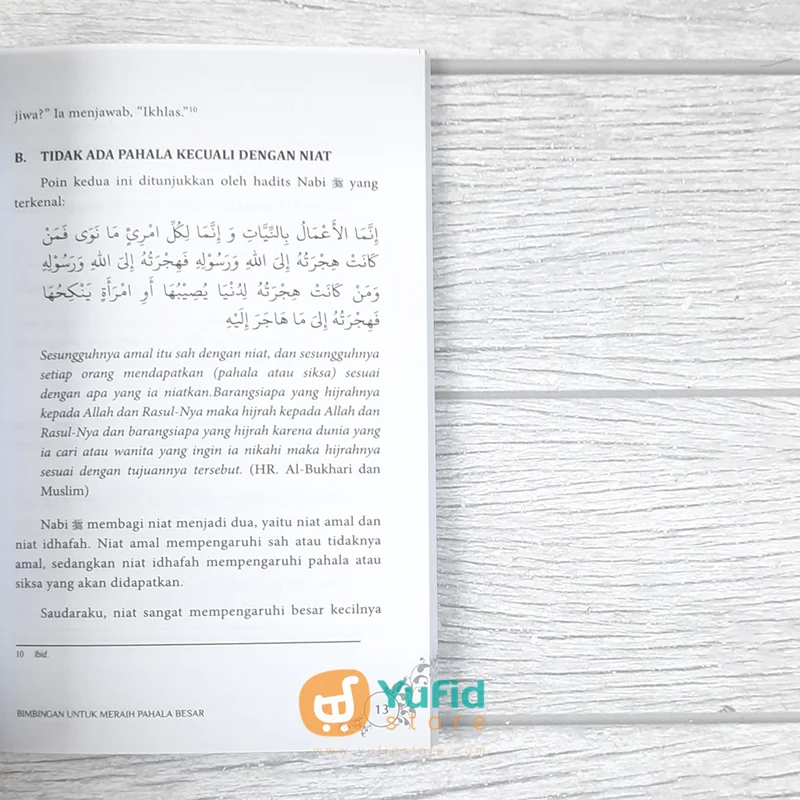 jiwa?” Ia menjawab, “Ikhlas.”10
B. TIDAK ADA PAHALA KECUALI DENGAN NIAT
Poin kedua ini ditunjukkan oleh hadits Nabi ﷺ yang
terkenal:
إِنَّمَا الأَعْمَالُ بِالنِّيَّاتِ وَ إِنَّمَا لِكُلِّ امْرِئٍ مَا نَوَى فَمَنْ
كَانَتْ هِجْرَتُهُ إِلَى اللهِ وَرَسُوْلِهِ فَهِجْرَتُهُ إِلَى اللهِ وَرَسُوْلِهِ
وَمَنْ كَانَتْ هِجْرَتُهُ لِدُنْيَا يُصِيْبُهَا أَوِ امْرَأَةٍ يَنْكِحُهَا
فَهِجْرَتُهُ إِلَى مَا هَاجَرَ إِلَيْهِ
Sesungguhnya amal itu sah dengan niat, dan sesungguhnya
setiap orang mendapatkan (pahala atau siksa) sesuai
dengan apa yang ia niatkan.Barangsiapa yang hijrahnya
kepada Allah dan Rasul-Nya maka hijrah kepada Allah dan
Rasul-Nya dan barangsiapa yang hijrah karena dunia yang
ia cari atau wanita yang ingin ia nikahi maka hijrahnya
sesuai dengan tujuannya tersebut. (HR. Al-Bukhari dan
Muslim)
Nabi ﷺ membagi niat menjadi dua, yaitu niat amal dan
niat idhafah. Niat amal mempengaruhi sah atau tidaknya
amal, sedangkan niat idhafah mempengaruhi pahala atau
siksa yang akan didapatkan.
Saudaraku, niat sangat mempengaruhi besar kecilnya
10 Ibid.
BIMBINGAN UNTUK MERAIH PAHALA BESAR
13
YuFid
store
www.yufidstore.com